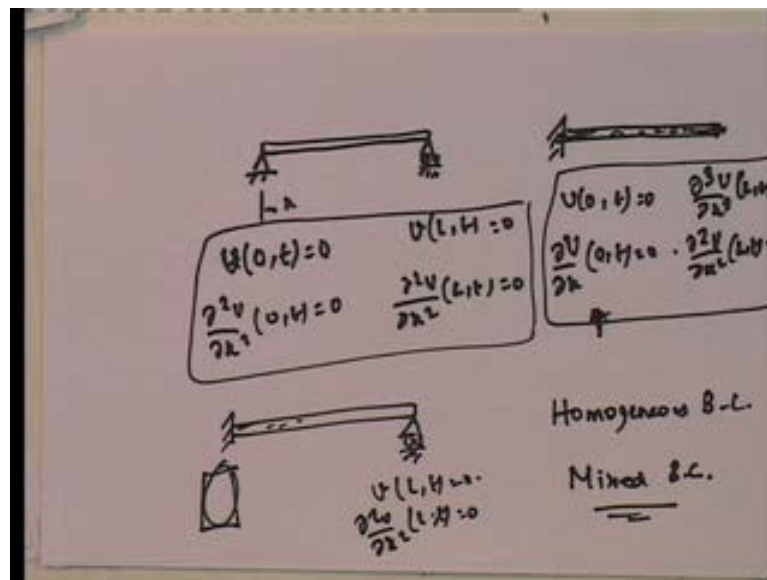 x
v(0,t)=0 v(L,t)=0
∂²v/∂x² (0,t)=0 ∂²v/∂x² (L,t)=0
v(0,t)=0 ∂³v/∂x³ (L,t
∂v/∂x (0,t)=0 . ∂²v/∂x² (L,t)=
v(L,t)=0.
∂²v/∂x² (L,t)=0
Homogeneous B.C.
Mixed B.C.